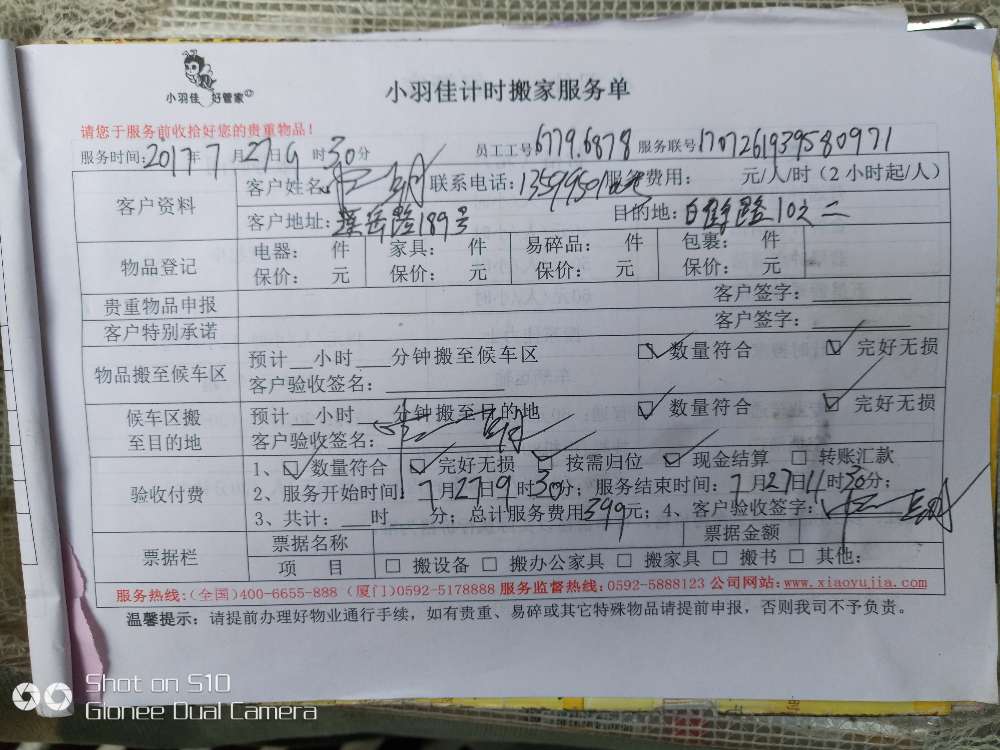 小羽佳 好管家
小羽佳计时搬家服务单
请您于服务前收拾好您的贵重物品！
服务时间：2017年7月27日9时30分 员工工号6779.6878 服务联号1707261939580971
客户资料 客户姓名： 联系电话： 服务费用： 元/人/时（2小时起/人）
客户地址： 路189号 目的地：白鹤路102之二
物品登记 电器： 件 家具： 件 易碎品： 件 包裹： 件
保价： 元 保价： 元 保价： 元 保价： 元
贵重物品申报 客户签字：
客户特别承诺 客户签字：
物品搬至候车区 预计__小时___分钟搬至候车区 ☑数量符合 ☑完好无损
客户验收签名：
候车区搬至目的地 预计__小时___分钟搬至目的地 ☑数量符合 ☑完好无损
客户验收签名：
验收付费 1、☑数量符合 ☑完好无损 ☑按需归位 ☑现金结算 □转账汇款
2、服务开始时间：7月27日9时30分；服务结束时间：7月27日11时30分；
3、共计：___时___分；总计服务费用399元；4、客户验收签字：
票据栏 票据名称 票据金额
项 目 □搬设备 □搬办公家具 □搬家具 □搬书 □其他：
服务热线：(全国)400-6655-888 (厦门)0592-5178888 服务监督热线：0592-5888123 公司网站：www.xiaoyujia.com
温馨提示：请提前办理好物业通行手续，如有贵重、易碎或其它特殊物品请提前申报，否则我司不予负责。
Shot on S10
Gionee Dual Camera